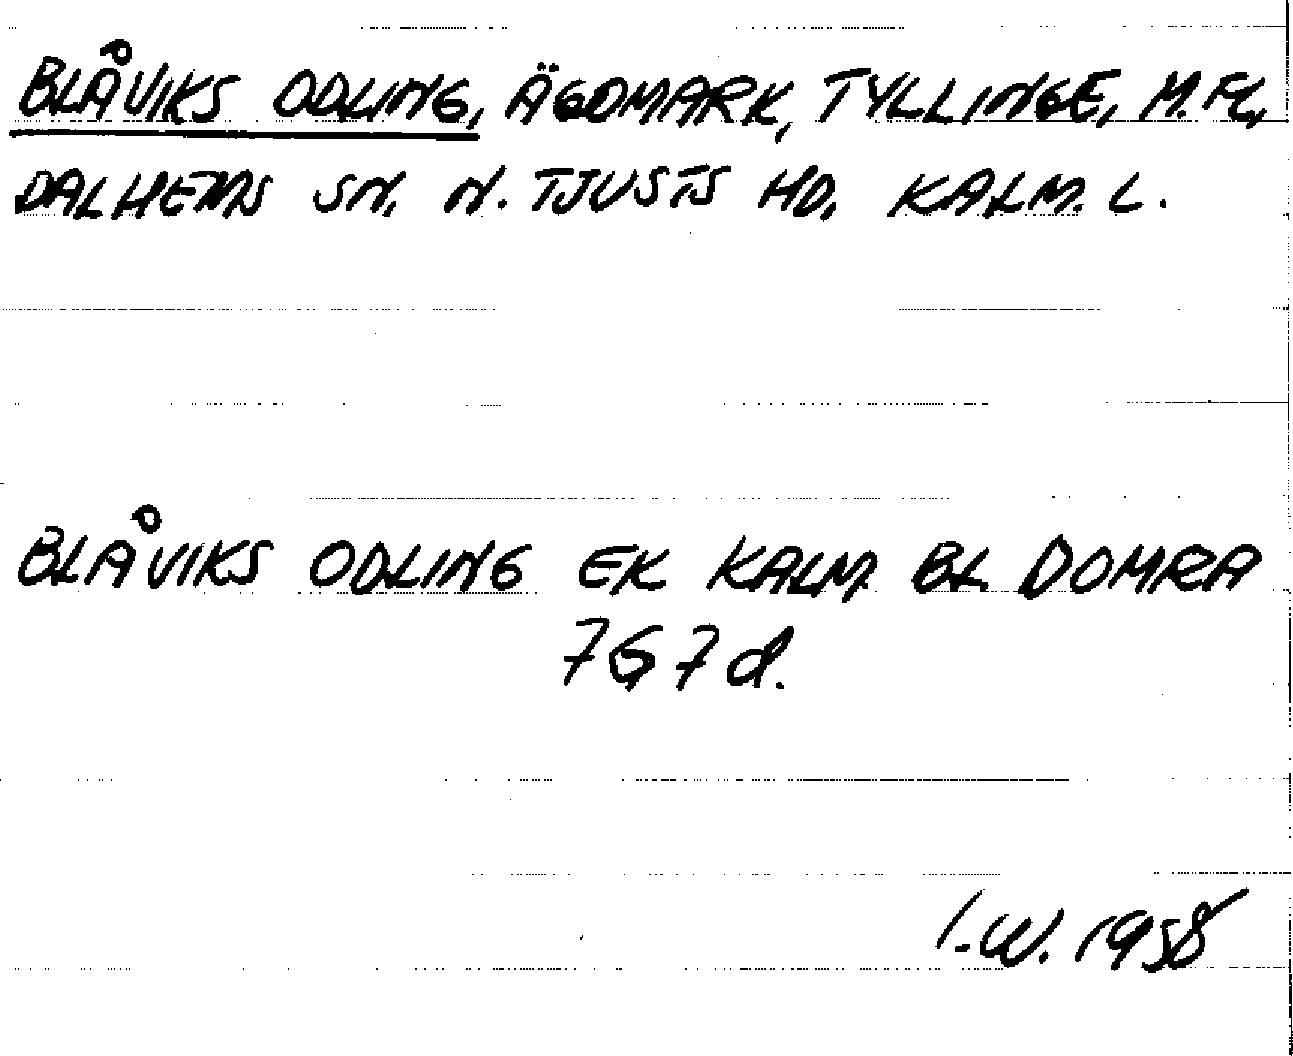 BLÅVIKS ODLING, ÄGOMARK, TYLLINGE, M.FL,
DALHEMS SN. N. TJUSTS HD. KALM. L.
BLÅVIKS ODLING EK KALM BL DOMRA
7G7d.
I.W. 1958